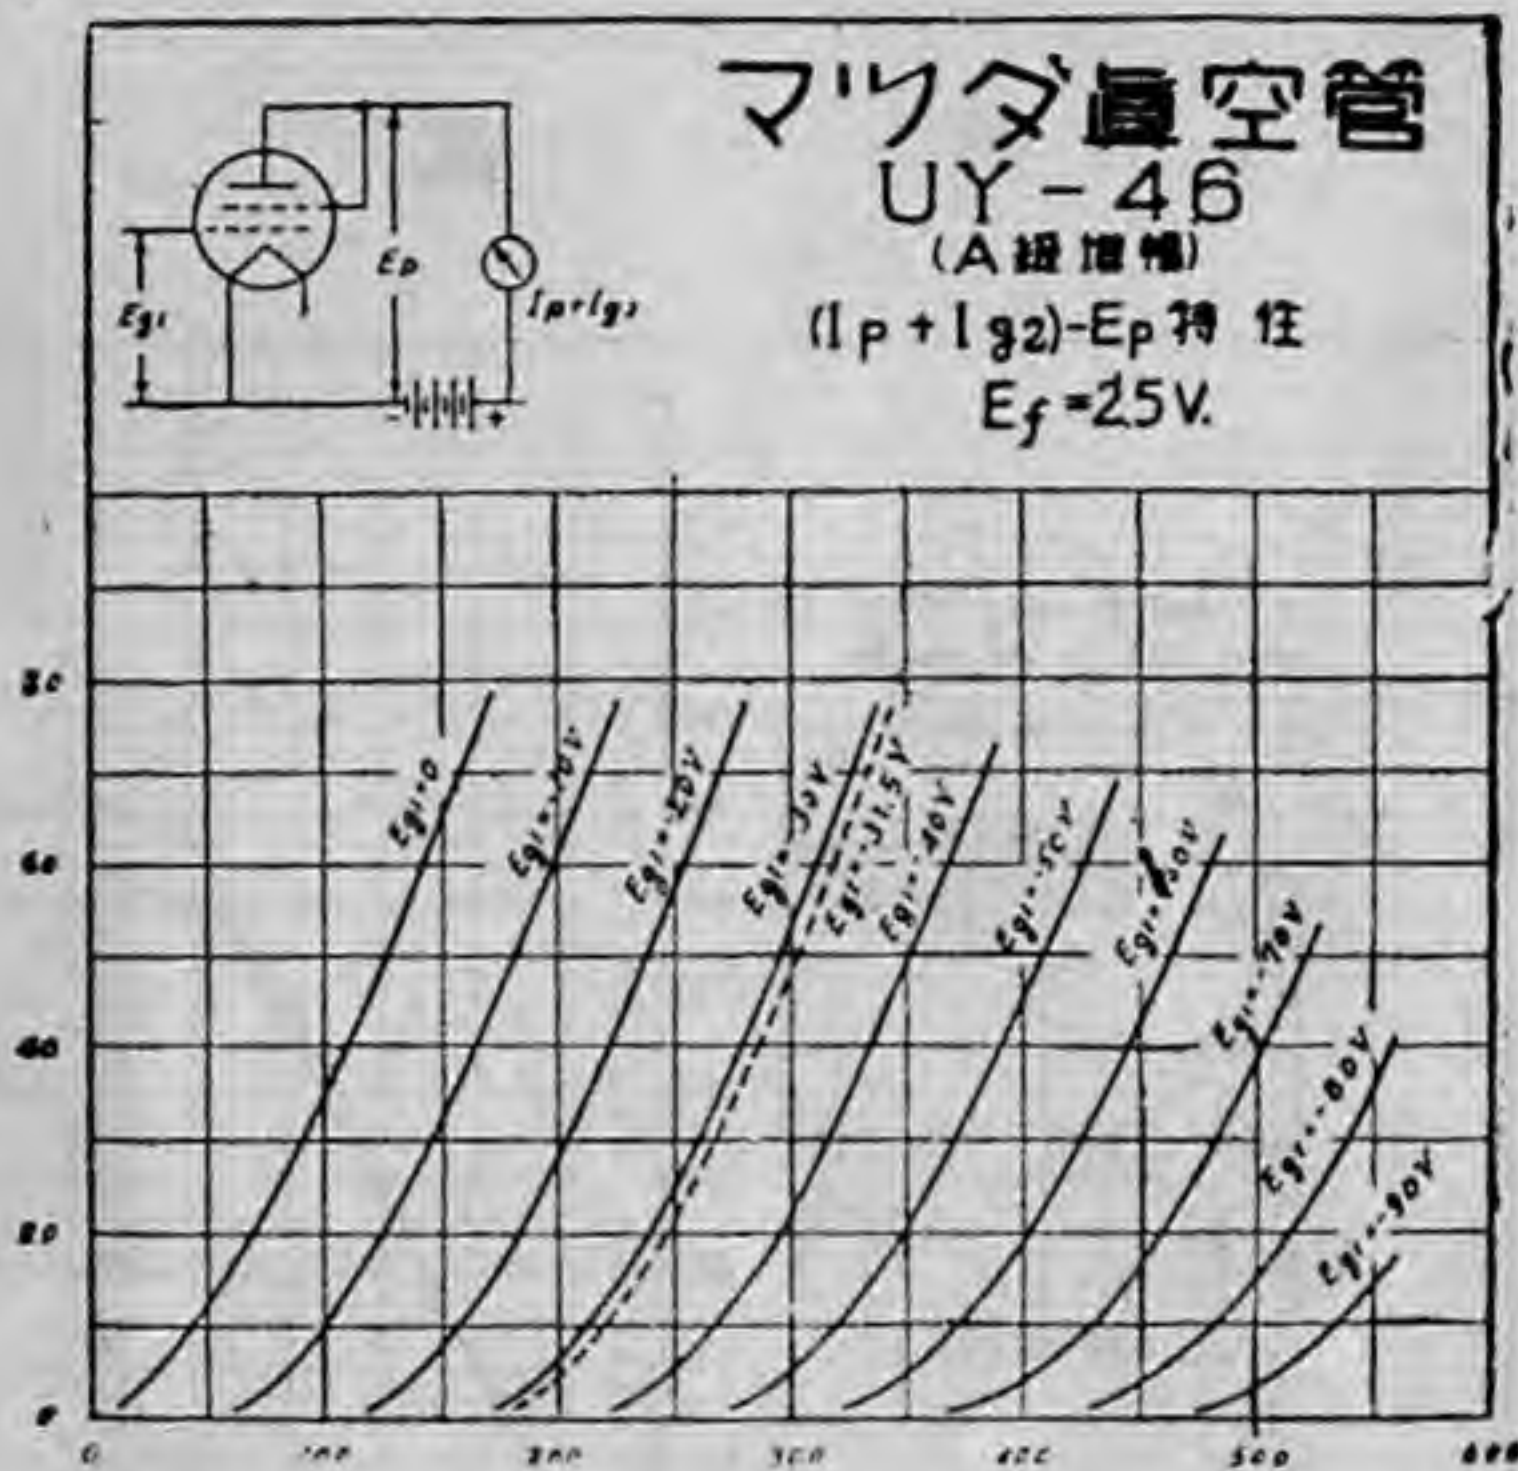 マツダ眞空管
UY-46
(A級増幅)
(Ip+Ig2)-Ep特性
Ef=2.5V.
Ep
Eg1
Ip+Ig2
- +
Eg1=0
Eg1=-10V
Eg1=-20V
Eg1=-30V
Eg1=-31.5V
Eg1=-40V
Eg1=-50V
Eg1=-60V
Eg1=-70V
Eg1=-80V
Eg1=-90V
80
60
40
20
0
0 100 200 300 400 500 600